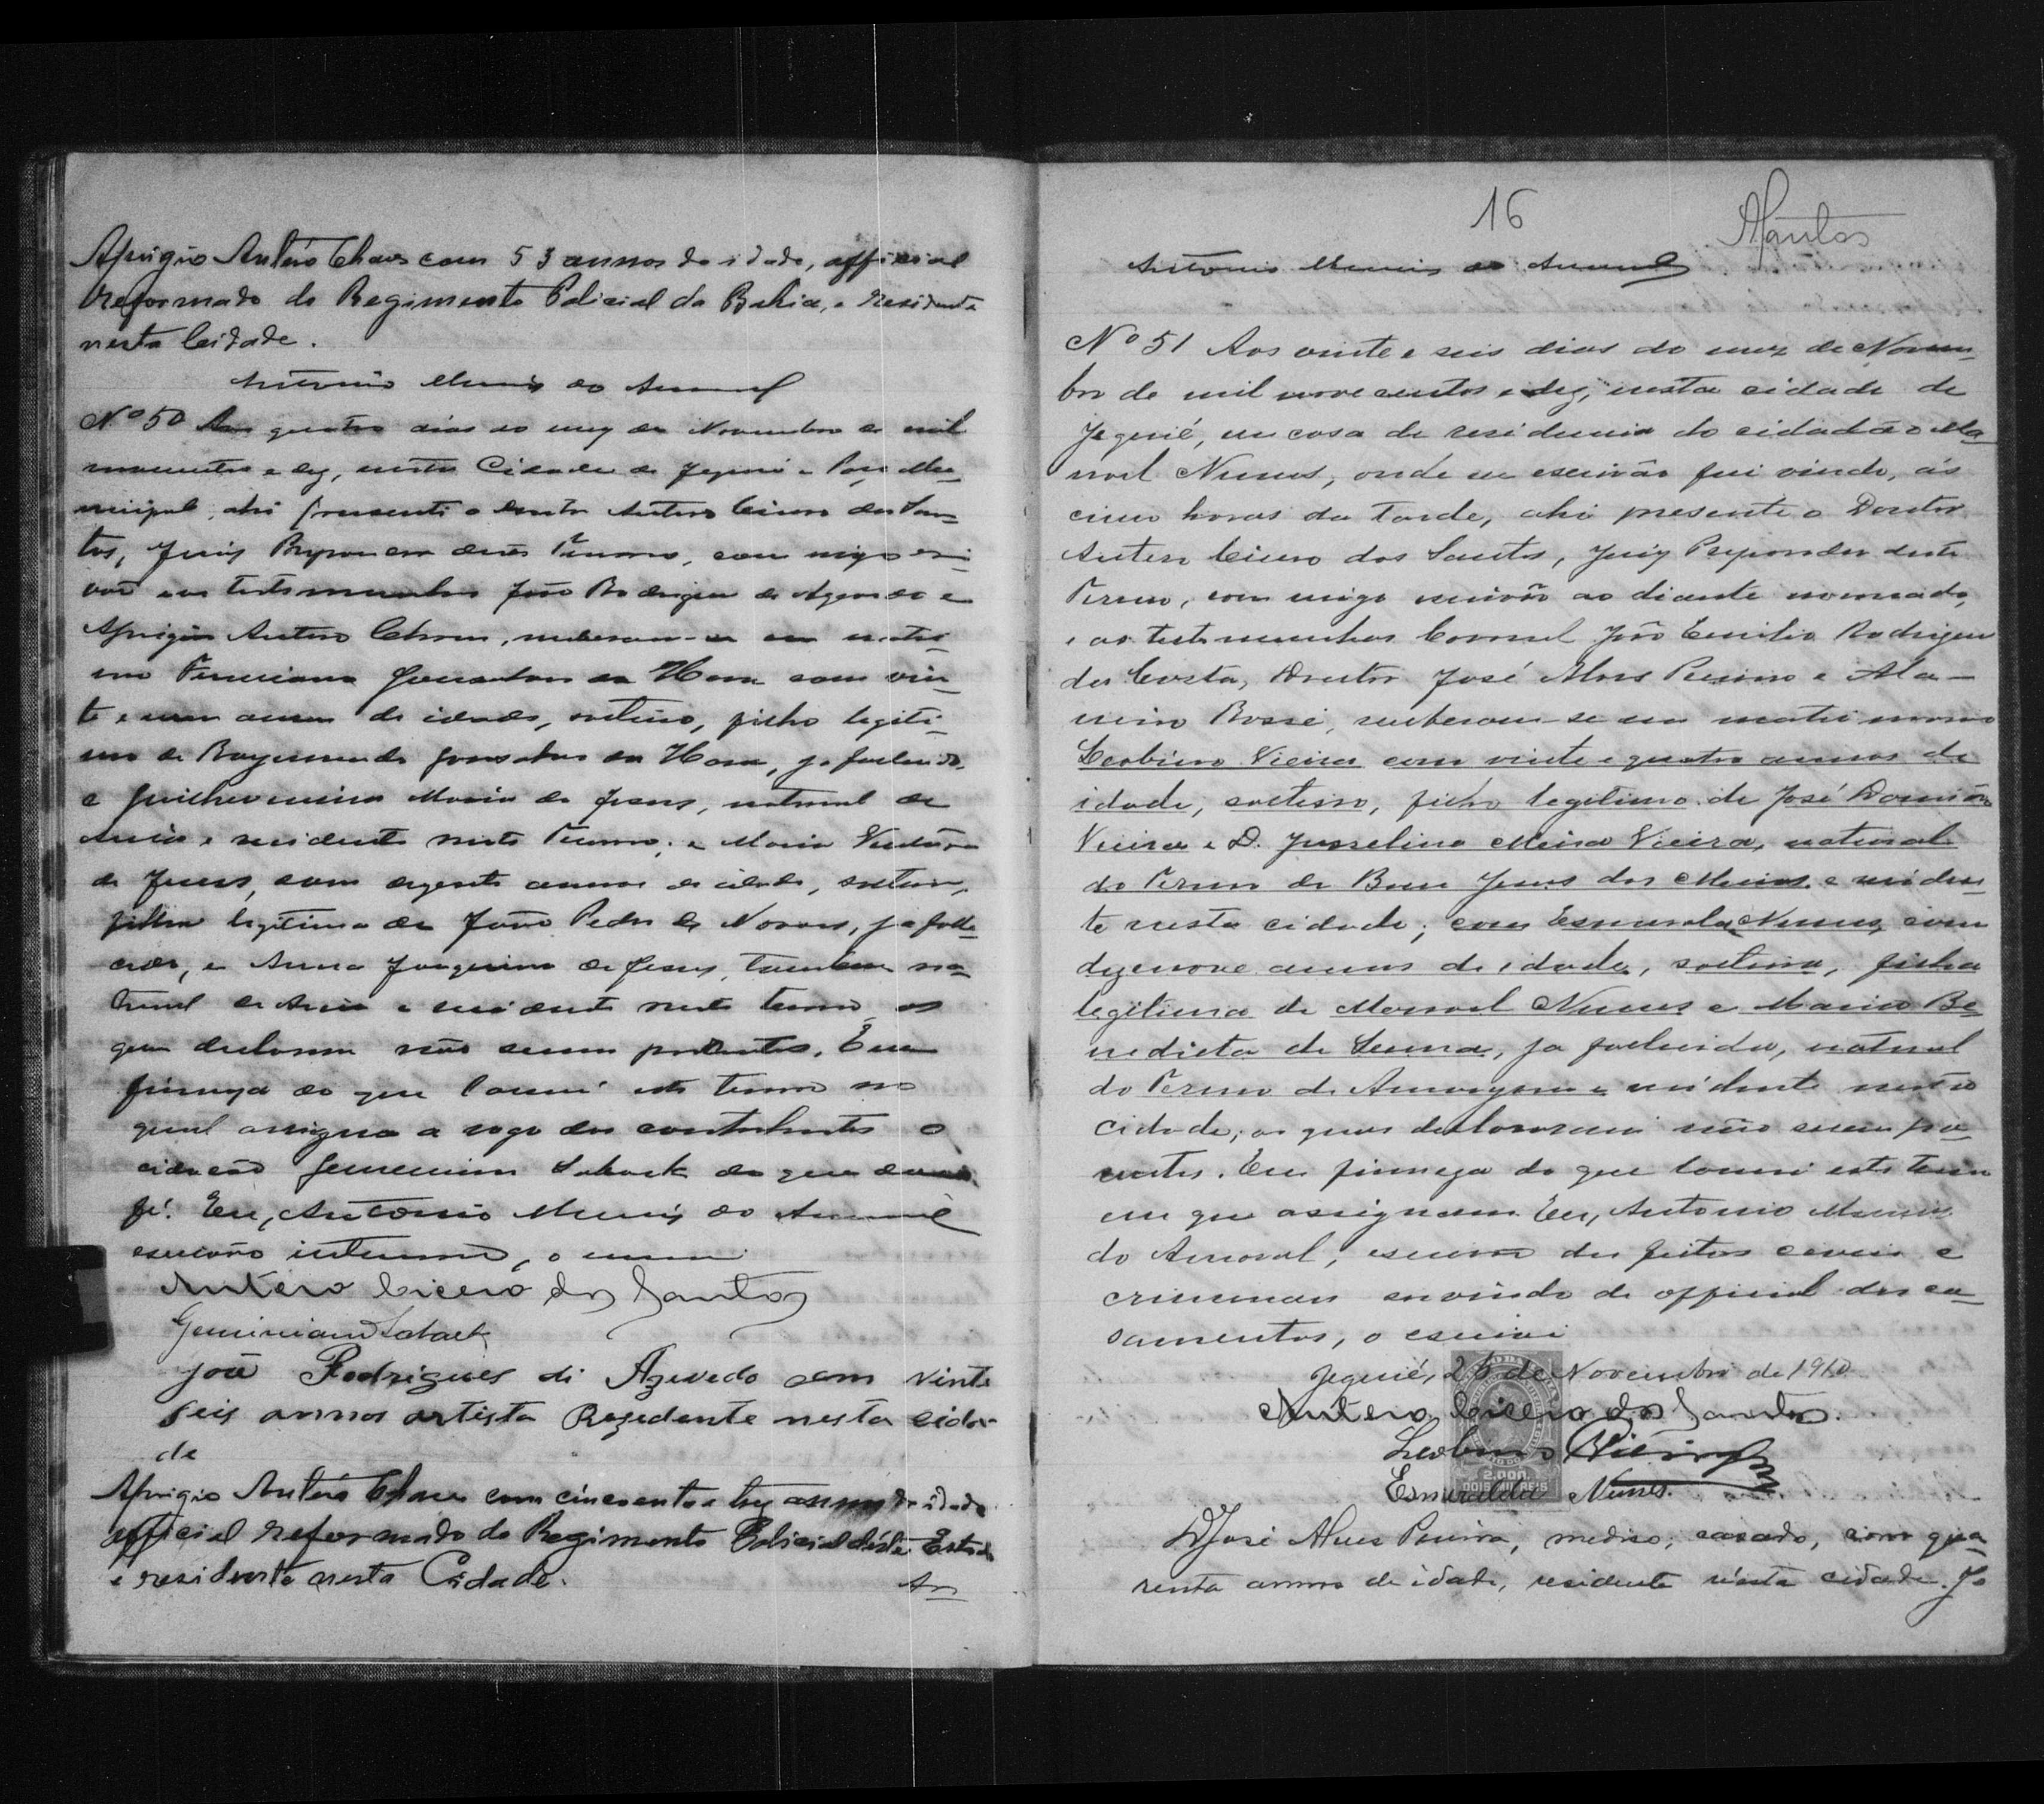 Aprigio Antéro Chaves com 53 annos de idade, official
reformado do Regimento Policial da Bahia, e residente
nesta Cidade.
Antonio Muniz do Amaral
Nº 50 Aos quatro dias do mez de Novembro de mil
novecentos e dez, nesta Cidade de Jequié e Paço Mu-
nicipal, ahi presente o Doutor Antero Cicero dos San-
tos, Juiz Preparador deste Termo, com migo escri-
vão e as testemunhas João Rodrigues de Azevedo e
Aprigio Antero Chaves, receberam-se em matri-
mo Gonsalves da Hora com vin-
te e um annos de idade, solteiro, filho legiti-
mo de Raymundo Gonsalves da Hora, ja fallecido,
e Guilhermina Maria de Jesus, natural de
Areia e residente neste Termo; e Maria
de Jesus, com dezesete annos de idade, solteira,
filha legitima de João Pedro de Novaes, ja falle-
cido, e Anna Joaquina de Jesus, tambem na-
tural de Areia e residente neste termo, os
quaes declaram não serem parentes. E em
firmeza do que lavrei este termo no
qual assigna a rogo dos contrahentes o
cidadão Geminiano Saback do que dou
fé. Eu, Antonio Muniz do Amaral
escrivão interino, o escrevi
Antero Cicero dos Santos
Geminiano Saback
João Rodrigues di Azevedo com vinte
seis annos artista Rezedente nesta cida-
de
Aprigio Antéro Chaves com cincoenta e trez annos de idade
official reformado do Regimento Policial déste Estado
e residente nesta Cidade.
An
16
ASantos
Antonio Muniz do Amaral
Nº 51 Aos vinte e seis dias do mez de Novem-
bro de mil novecentos e dez, nesta cidade de
Jequié, em casa de residencia do cidadão Ma-
noel Nunes, onde eu escrivão fui vindo, ás
cinco horas da tarde, ahi presente o Doutor
Antero Cicero dos Santos, Juiz Preparador deste
Termo, com migo escrivão ao diante nomeado,
e as testemunhas Coronel João Emilio Rodrigues
da Costa, Doutor José Alves Pereira e
Rossi, receberam-se em matrimonio
Leobino Vieira com vinte e quatro annos de
idade, solteiro, filho legitimo de José Damião
Vieira e D. Jusselina Meira Vieira, natural
do Termo de Bom Jesus dos Meiras e residen-
te nesta cidade; com Esmeralda Nunes, com
dezenove annos de idade, solteira, filha
legitima de Manoel Nunes e Maria Be
nedicta de Senna, ja fallecida, natural
do Termo de Amargosa e residente nesta
cidade; os quaes declararam não serem pa-
rentes. Em firmeza do que lavrei este termo
em que assignam. Eu, Antonio Muniz
do Amaral, escrivão dos feitos civeis e
criminaes servindo de official dos ca-
samentos, o escrevi
Jequié, 26 de Novembro de 1910
Antero Cicero dos Santos.
Leobino Vieira
Esmeralda Nunes.
2.000
DOIS MIL REIS
Dr José Alves Pereira, medico, casado, com qua-
renta annos de idade, residente nésta cidade. Jo